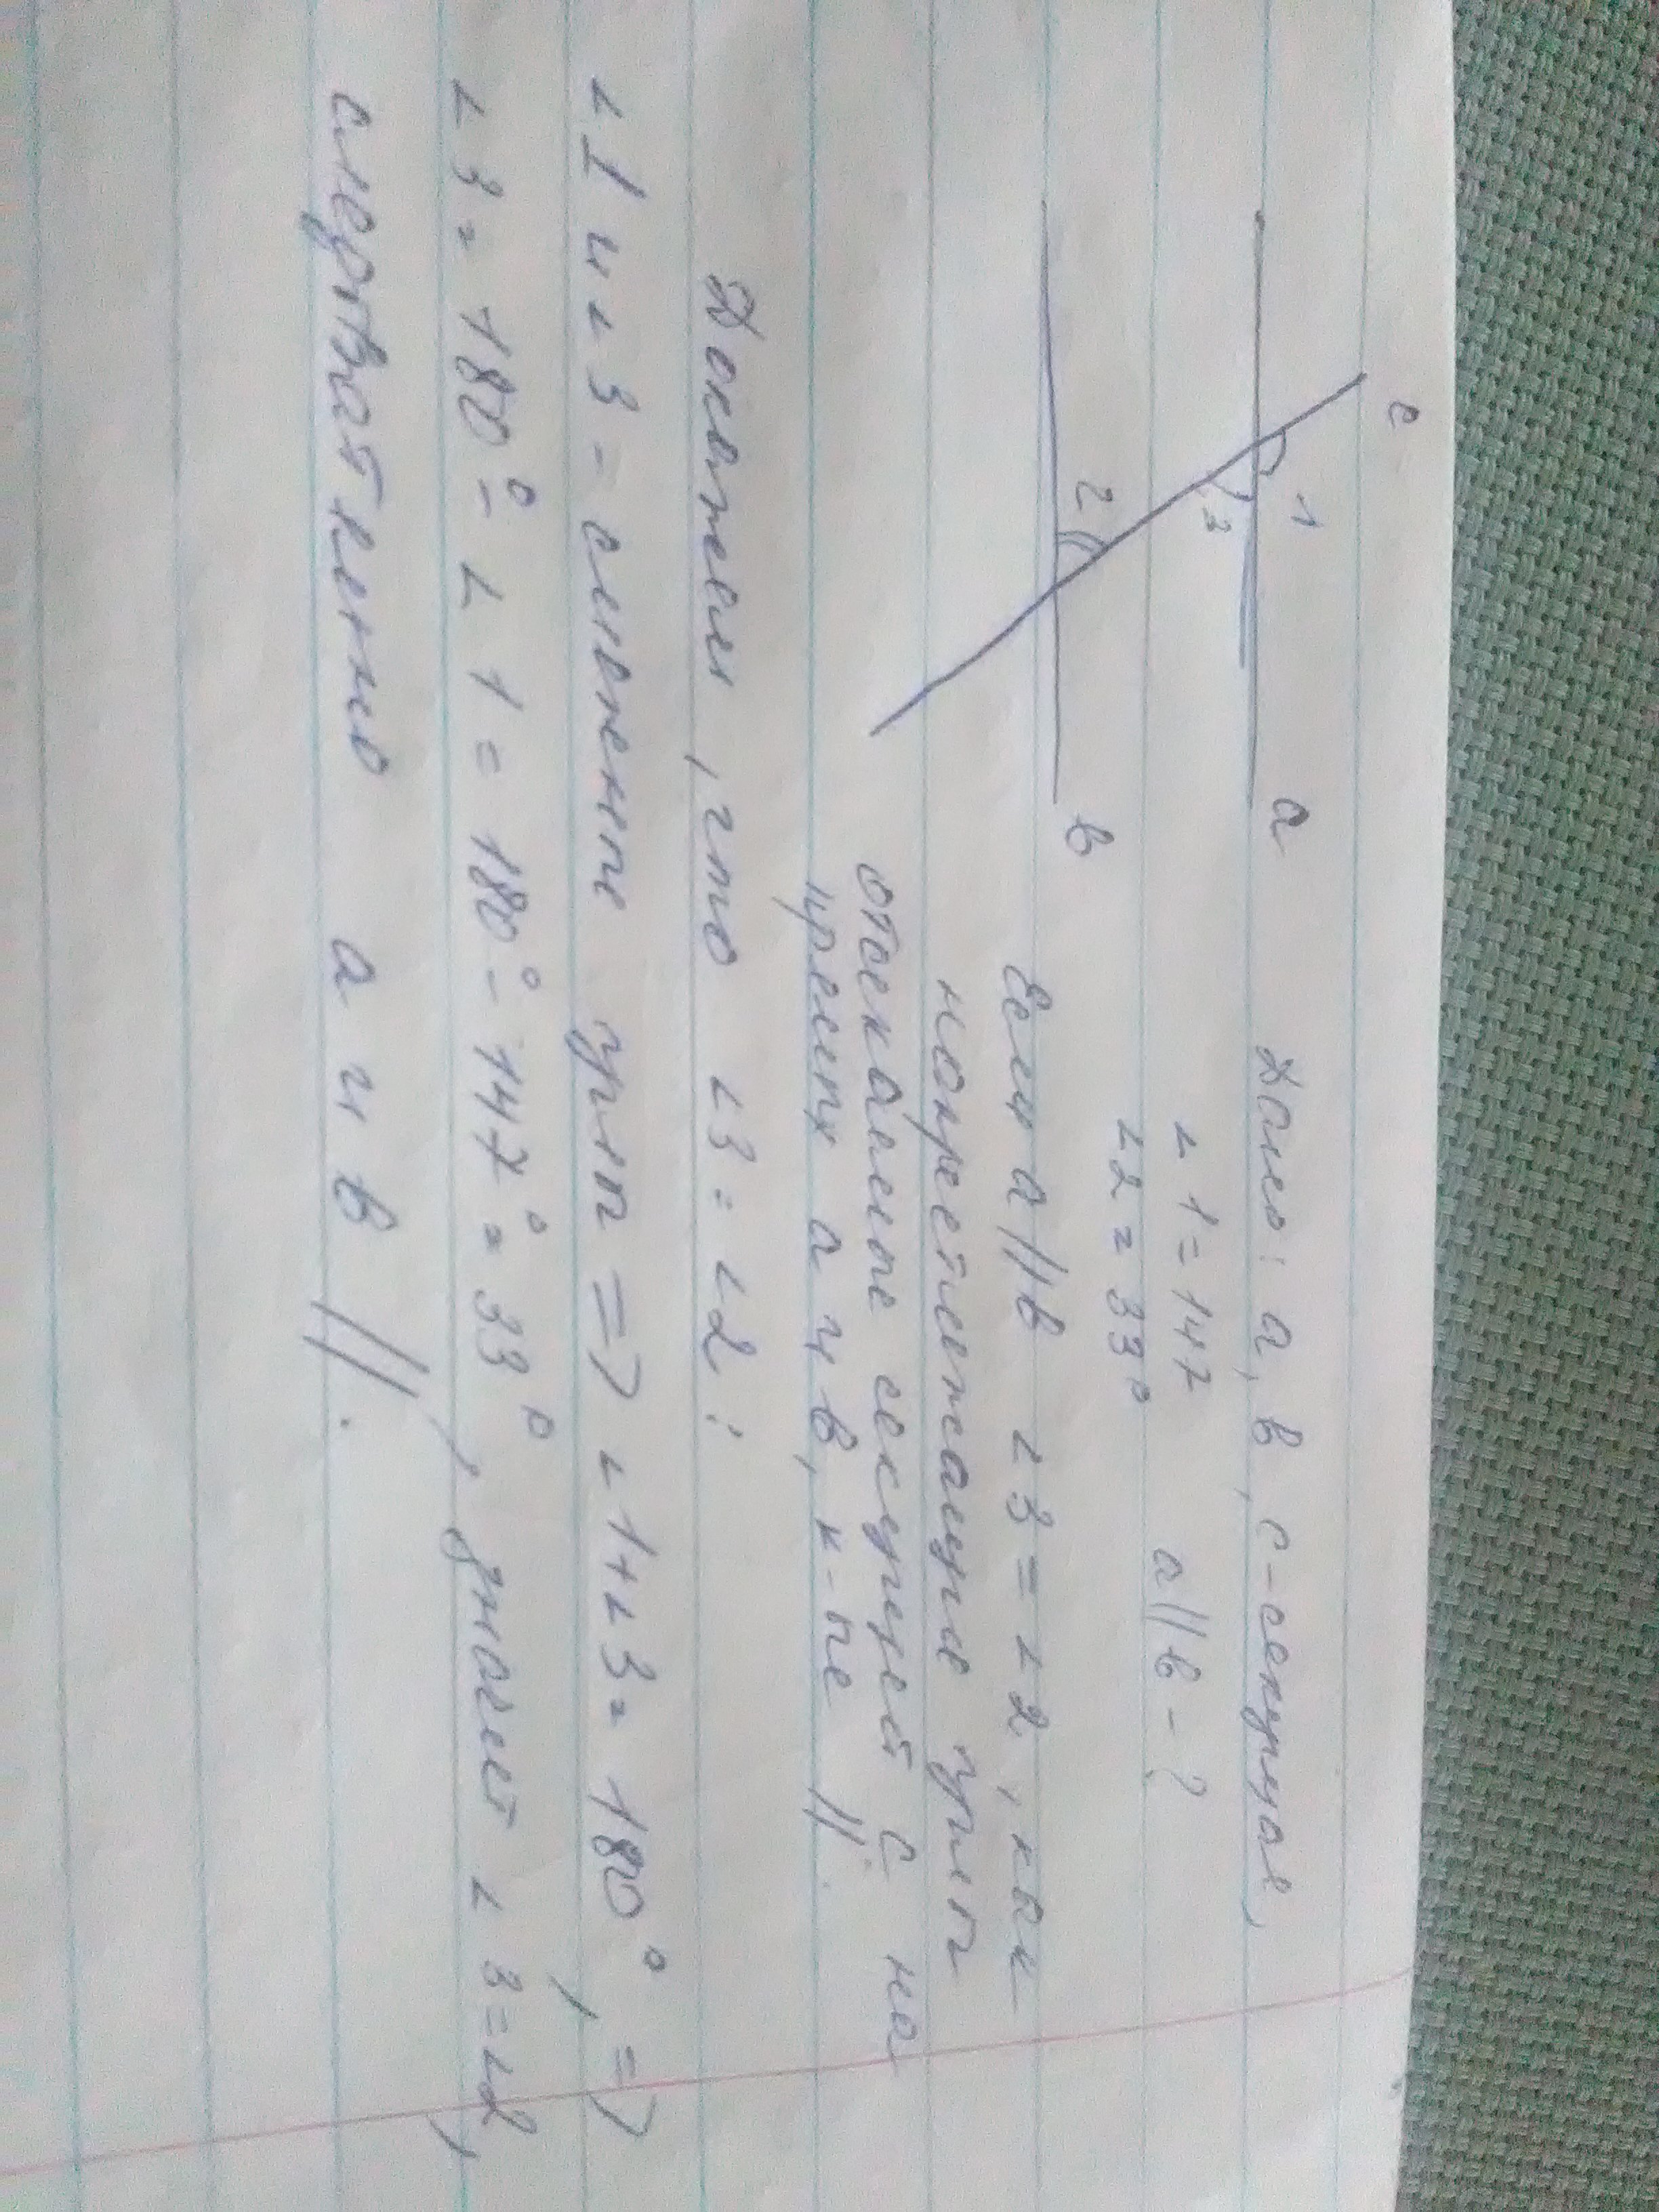 c
1
a
3
2
в
Дано: a, в, c - секущая,
∠1 = 147
∠2 = 33°
a||в - ?
Если a||в ∠3 = ∠2, как
накрестлежащие углы
отсекаемые секущей с на
прямых а и в, к-ые ||.
Докажем, что ∠3 = ∠2:
∠1 и ∠3 - смежные углы => ∠1+∠3= 180°, =>
∠3 = 180° - ∠1 = 180° - 147° = 33°, значит ∠3=∠2,
следовательно а и в ||.